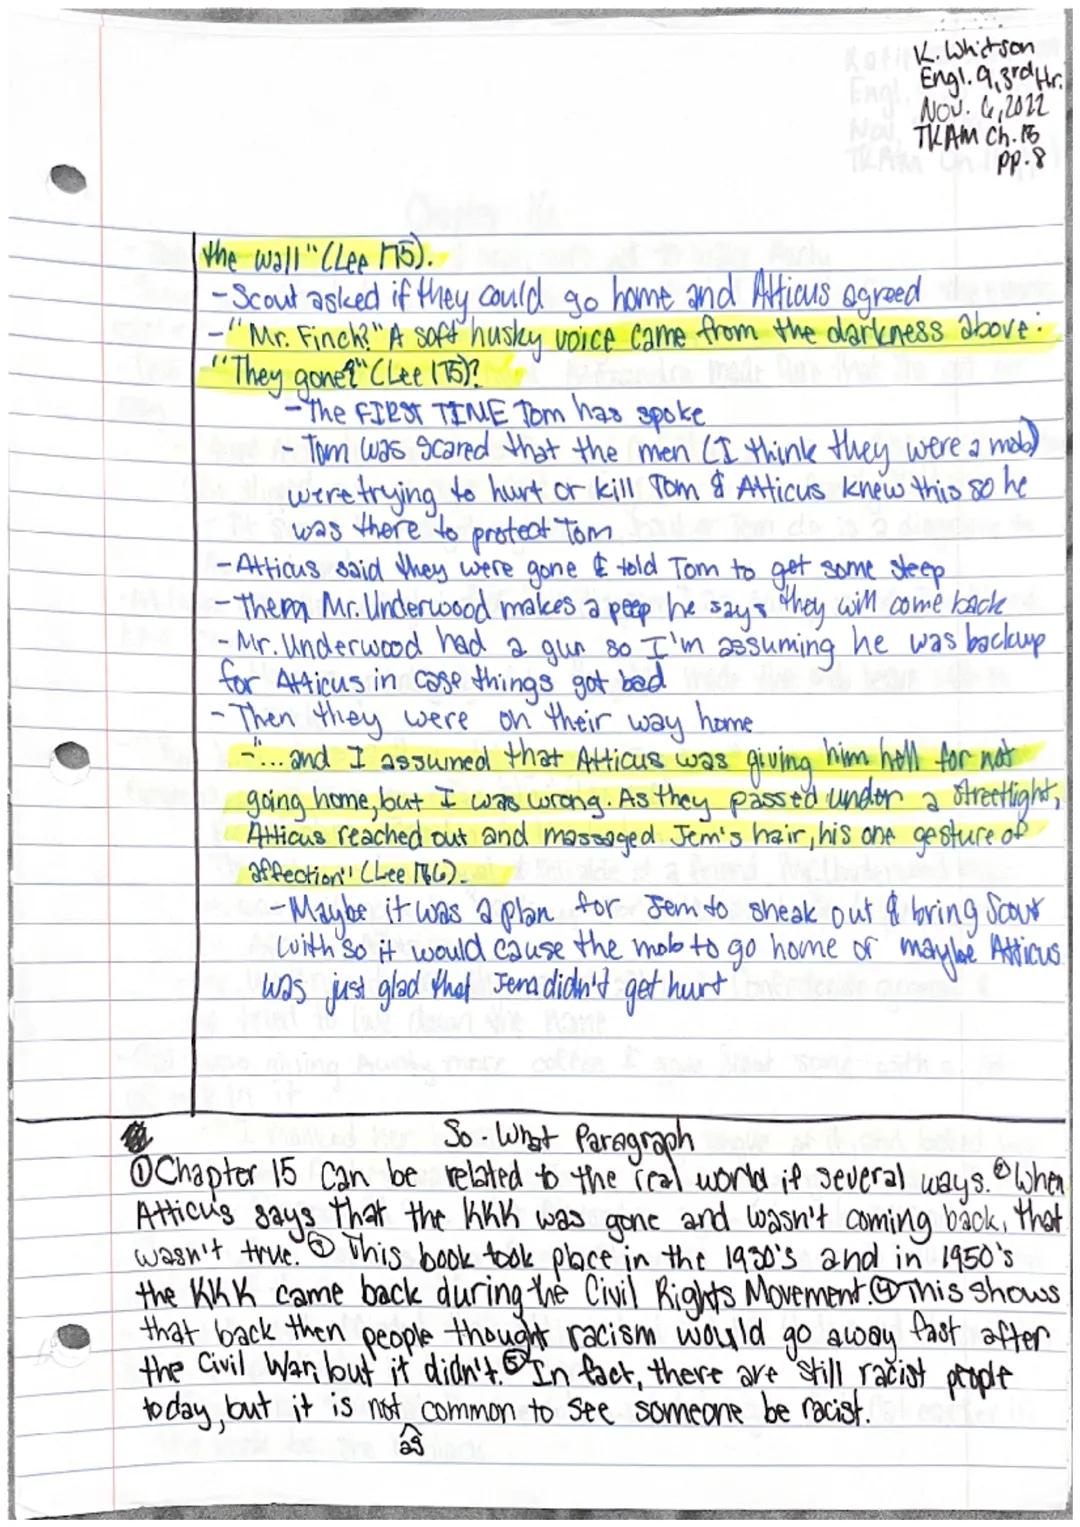 K. Whitson
Engl. 9, 3rd Hr.
Nov. 6, 2022
TKAM Ch. 15
pp. 8
the wall" (Lee 175).
- Scout asked if they could go home and Atticus agreed
- "Mr. Finch?" A soft husky voice came from the darkness above:
"They gone?" (Lee 175)?
- The FIRST TINE Tom has spoke
- Tom was scared that the men (I think they were a mob)
were trying to hurt or kill Tom & Atticus knew this so he
was there to protect Tom
- Atticus said they were gone & told Tom to get some sleep
- Then Mr. Underwood makes a peep he says they will come back
- Mr. Underwood had a gun so I'm assuming he was backup
for Atticus in case things got bad
- Then they were on their way home
- "... and I assumed that Atticus was giving him hell for not
going home, but I was wrong. As they passed under a streetlight,
Atticus reached out and massaged Jem's hair, his one gesture of
affection" (Lee 176).
- Maybe it was a plan for Jem to sneak out & bring Scout
with so it would cause the mob to go home or maybe Atticus
was just glad that Jem didn't get hurt
So-What Paragraph
① Chapter 15 can be related to the real world if several ways. ② When
Atticus says that the KKK was gone and wasn't coming back, that
wasn't true. ③ This book took place in the 1930's and in 1950's
the KKK came back during the Civil Rights Movement. ④ This shows
that back then people thought racism would go away fast after
the Civil War, but it didn't. ⑤ In fact, there are still racist people
today, but it is not ^ common to see someone be racist.
as